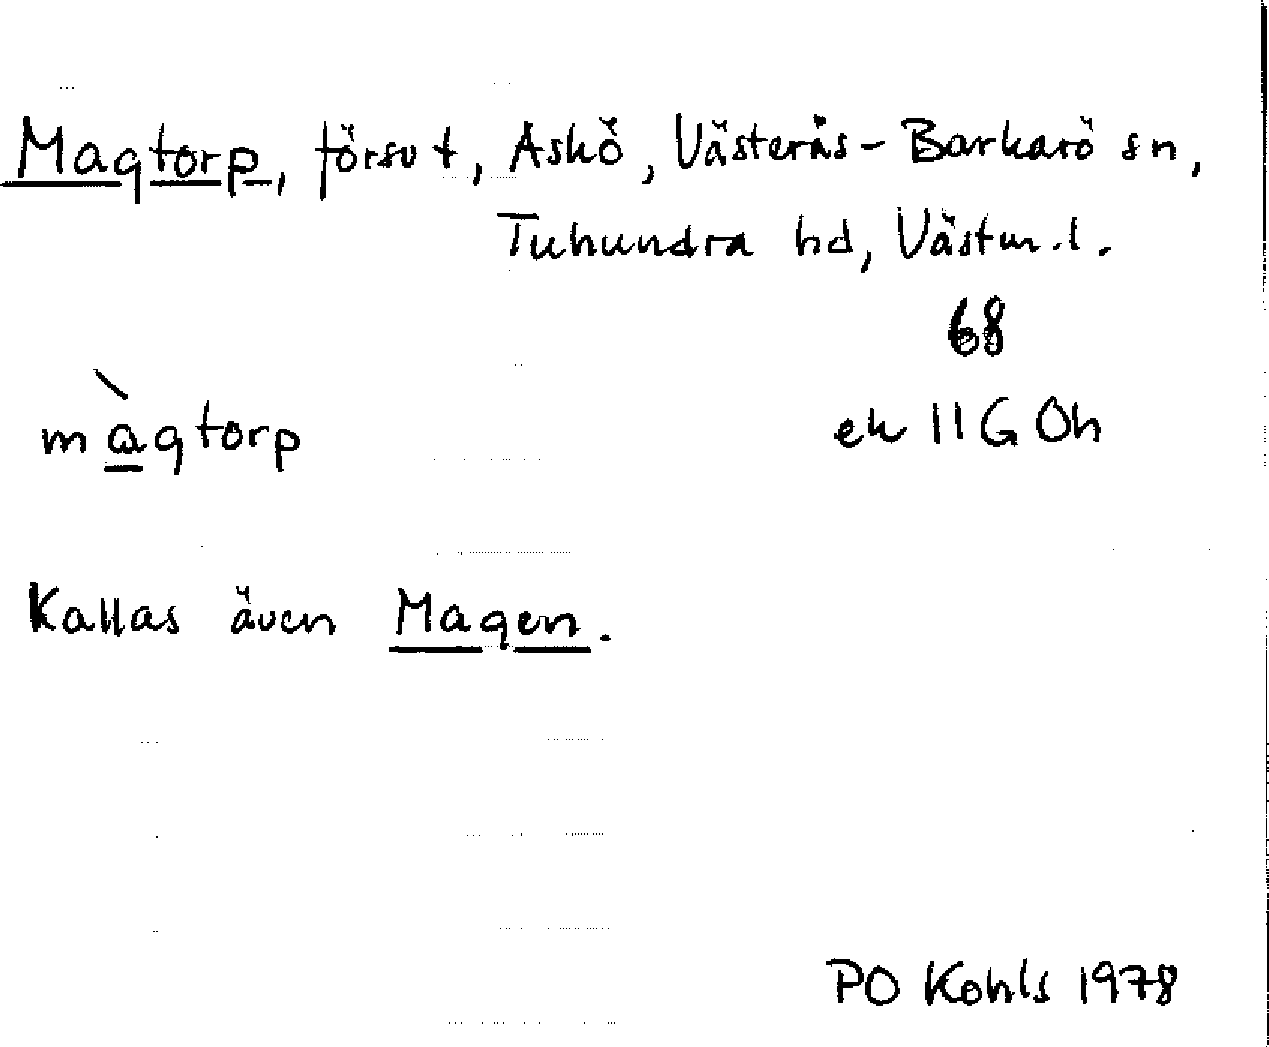 Magtorp, försv t, Askö, Västerås-Barkarö sn,
Tuhundra hd, Västm.l.
68
màgtorp
ek 11G 0h
Kallas även Magen.
PO Kohls 1978